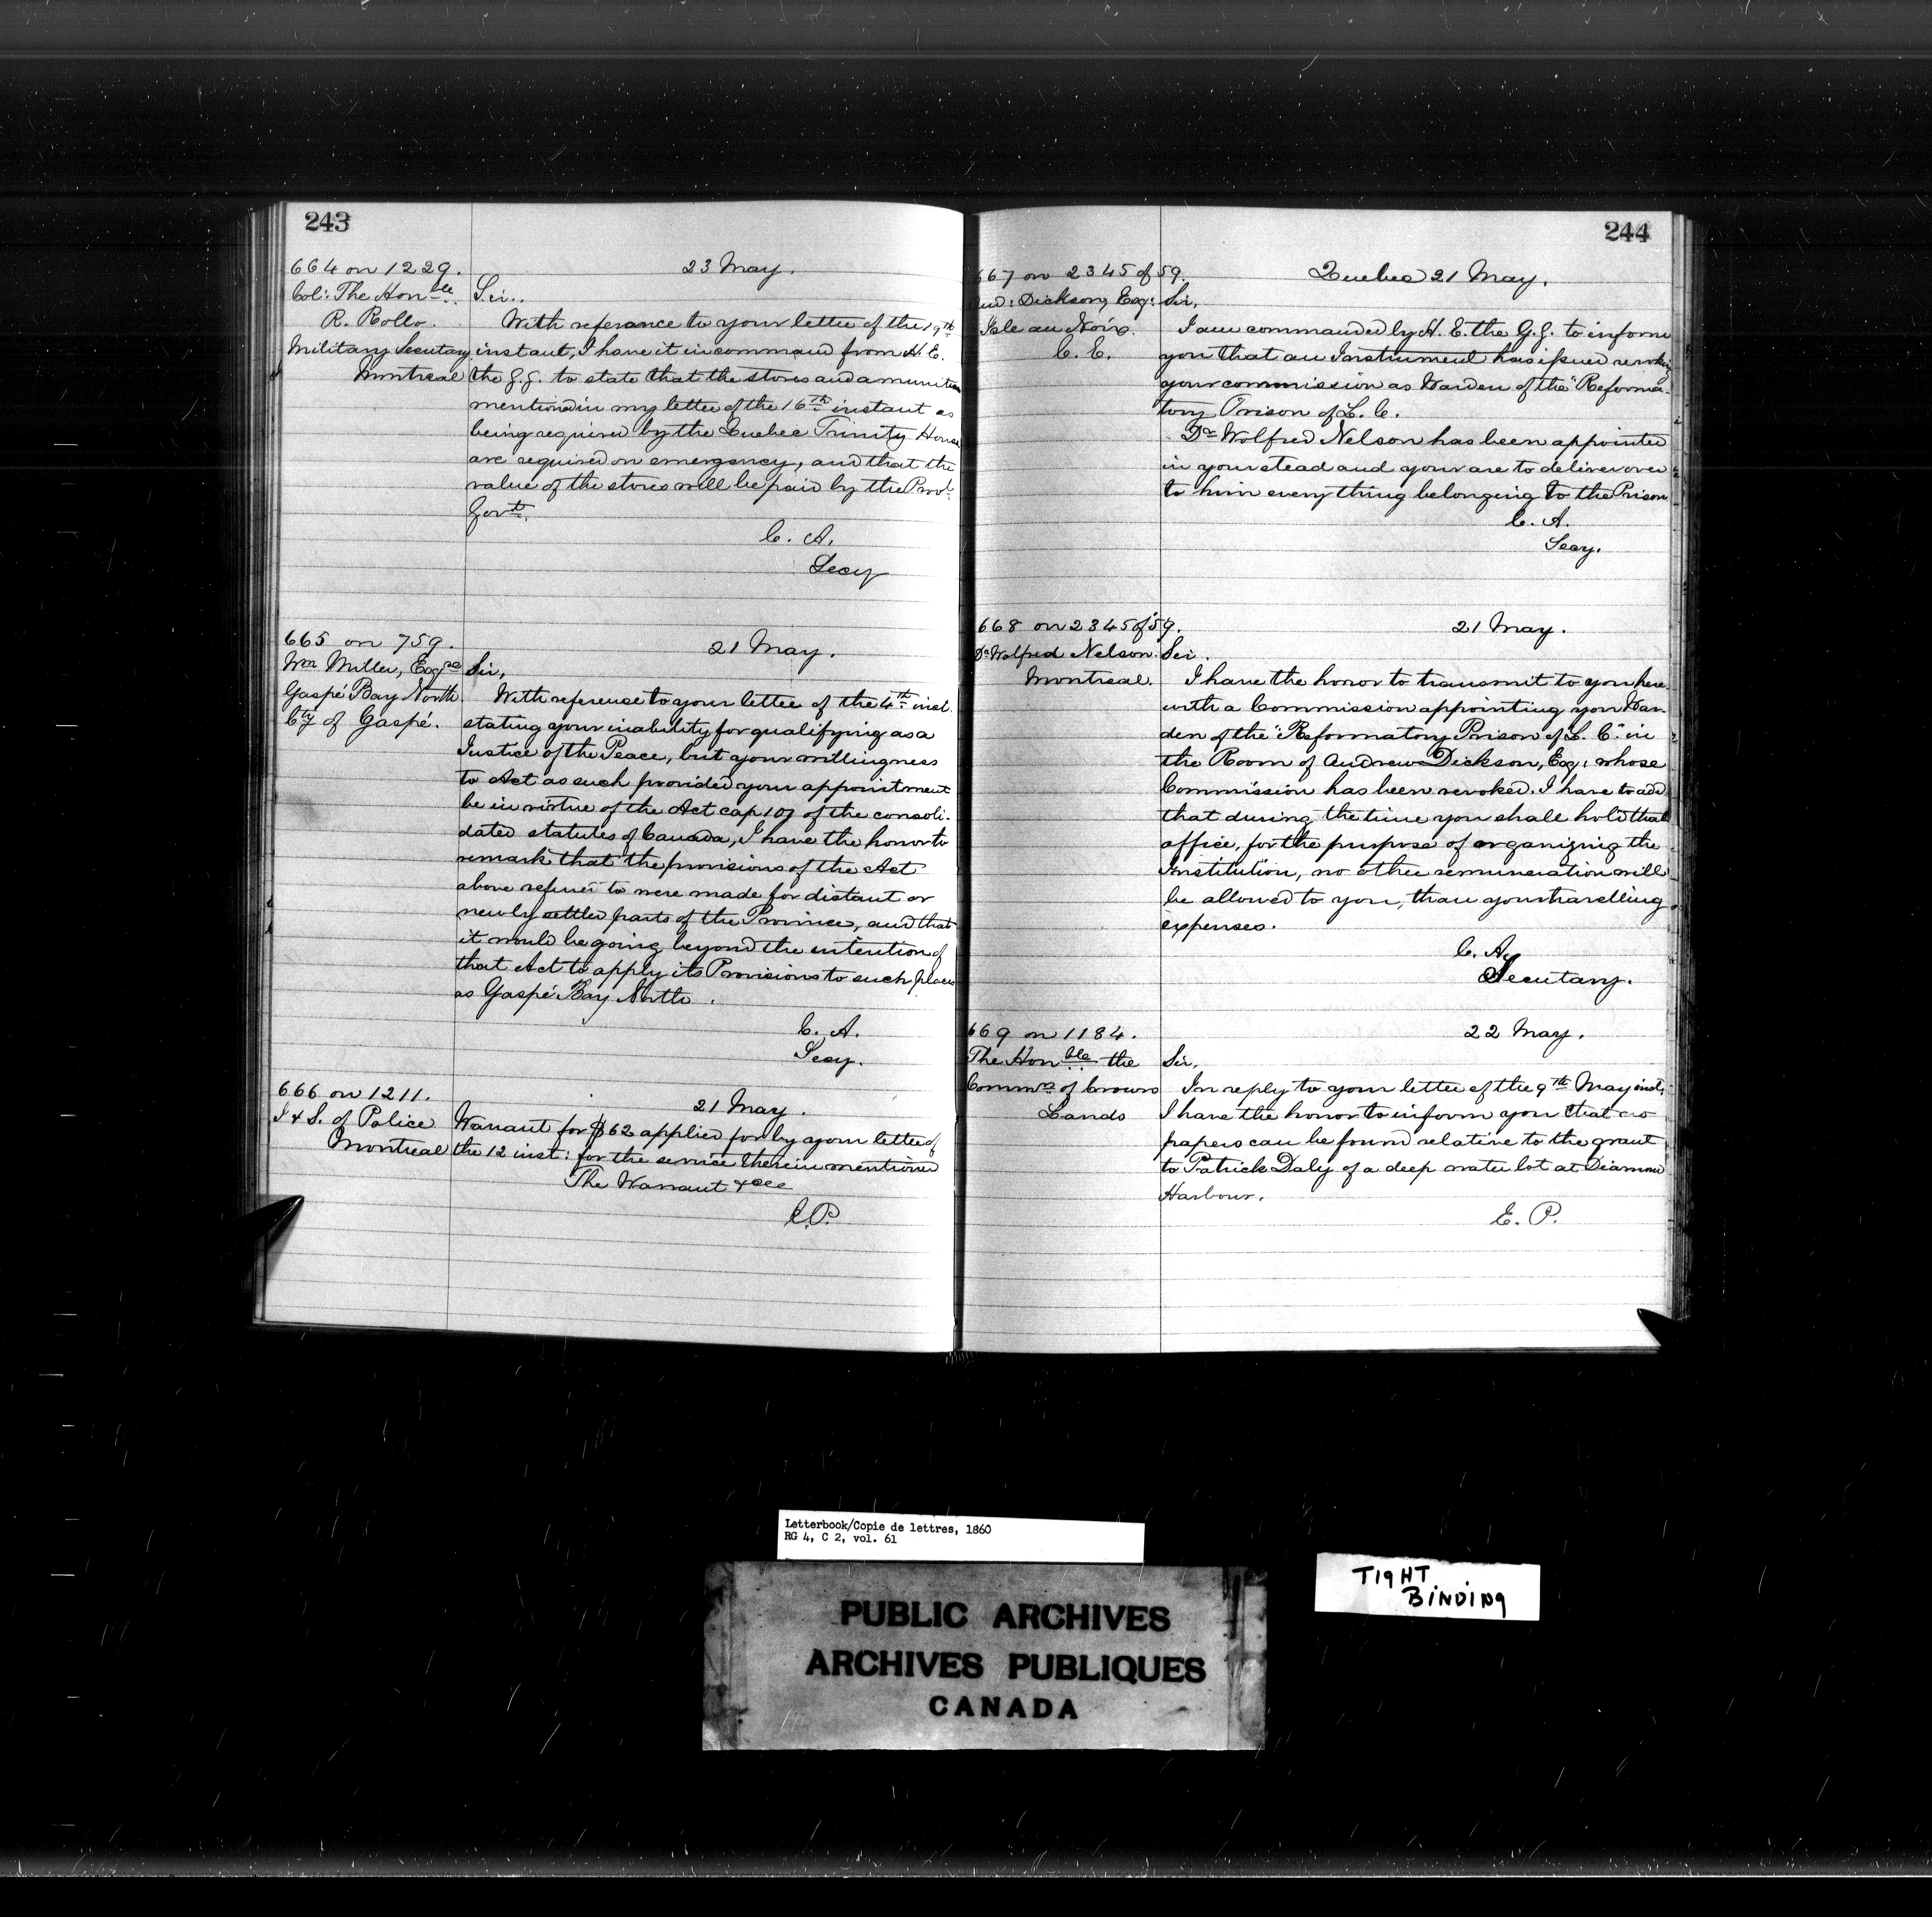 243
664 on 1229.
Col: The Honble
R. Rollo.
Military Secretary
Montreal
23 May.
Sir..
With referance to your letter of the 19th
instant, I have it in command from H. E.
the G. G. to state that the stores and amunition
mentioned in my letter of the 16th instant as
being required by the Quebec Trinity House
are required on emergency, and that the
value of the stores will be paid by the Provl
Govt.
C. A.
Secy
665 on 759.
Wm Miller, Esqre
Gaspé Bay North
Cty of Gaspé.
21 May.
Sir,
With reference to your letter of the 4th inst.
stating your inability for qualifying as a
Justice of the Peace, but your willingness
to Act as such provided your appointment
be in virtue of the Act cap 107 of the consoli-
dated statutes of Canada, I have the honor to
remark that the provisions of the Act
above referred to were made for distant or
newly settled parts of the Province, and that
it would be going beyond the intention of
that Act to apply its Provisions to such places
as Gaspé Bay North.
C. A.
Secy.
666 on 1211.
I & S. of Police
Montreal
21 May.
Warrant for $62 applied for by your letter of
the 12 inst: for the service therein mentioned
The Warrant &ce
E.P.
244
667 on 2345 of 59.
And: Dickson, Esq:
Isle au Noix.
C. E.
Quebec 21 May.
Sir,
I am commanded by H. E. the G. G. to inform
you that an Instrument has issued revoking
your commission as Warden of the "Reforma-
tory Prison of L. C.
Dr Wolfred Nelson has been appointed
in your stead and your are to deliver over
to him every thing belonging to the Prison
C. A.
Secy.
668 on 2345 of 59.
Dr Wolfred Nelson.
Montreal.
21 May.
Sir.
I have the honor to transmit to you here
with a Commission appointing you War-
den of the "Reformatory Prison of L. C." in
the Room of Andrew Dickson, Esq: whose
Commission has been revoked. I have to add
that during the time you shall hold that
office, for the purpose of organizing the
Institution, no other remuneration will
be allowed to you, than your travelling
expenses.
C. A.
Secretary.
669 on 1184.
The Honble the
Commr. of Crown
Lands
22 May.
Sir,
In reply to your letter of the 9th May inst,
I have the honor to inform you that no
papers can be found relative to the grant
to Patrick Daly of a deep water lot at Diamond
Harbour.
E. P.
Letterbook/Copie de lettres, 1860
RG 4, C 2, vol. 61
PUBLIC ARCHIVES
ARCHIVES PUBLIQUES
CANADA
TIGHT
BINDING